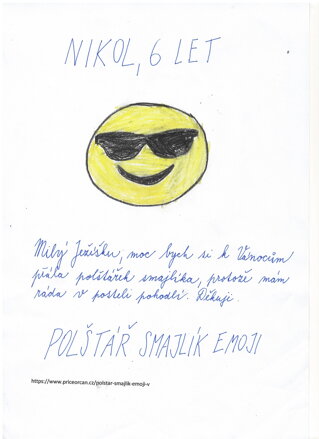 NIKOL, 6 LET
Milý Ježíšku, moc bych si k Vánocům
přála polštářek smajlíka, protože mám
ráda v posteli pohodlí. Děkuji.
POLŠTÁŘ SMAJLÍK EMOJI
https://www.priceorcan.cz/polstar-smajlik-emoji-v